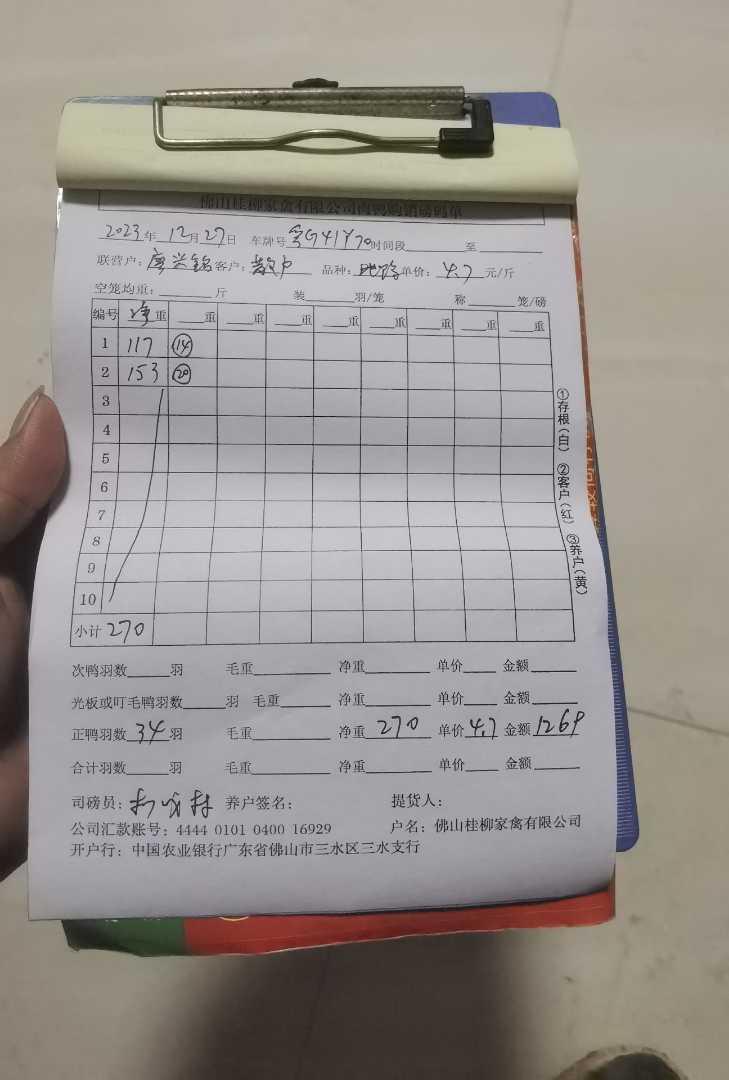 佛山桂柳家禽有限公司肉鸭购销磅码单
2023年 12月27日 车牌号 粤G41Y70 时间段 至
联营户： 客户：散户 品种： 单价：4.7元/斤
空笼均重： 斤 装 羽/笼 称 笼/磅
编号 净重 重 重 重 重 重 重 重 重
1 117 ⑭
2 153 ⑳
3
4
5
6
7
8
9
10
小计 270
①存根（白） ②客户（红） ③养户（黄）
次鸭羽数 羽 毛重 净重 单价 金额
光板或叮毛鸭羽数 羽 毛重 净重 单价 金额
正鸭羽数 34 羽 毛重 净重 270 单价 4.7 金额 1269
合计羽数 羽 毛重 净重 单价 金额
司磅员： 养户签名： 提货人：
公司汇款账号：4444 0101 0400 16929 户名：佛山桂柳家禽有限公司
开户行：中国农业银行广东省佛山市三水区三水支行